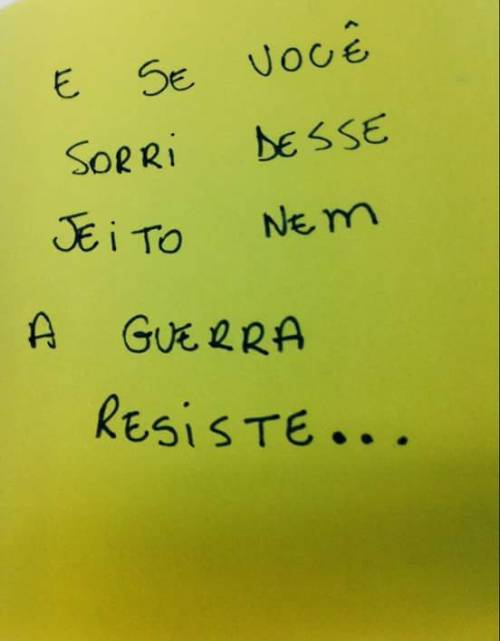 E SE VOCÊ
SORRI DESSE
JEITO NEM
A GUERRA
RESISTE...